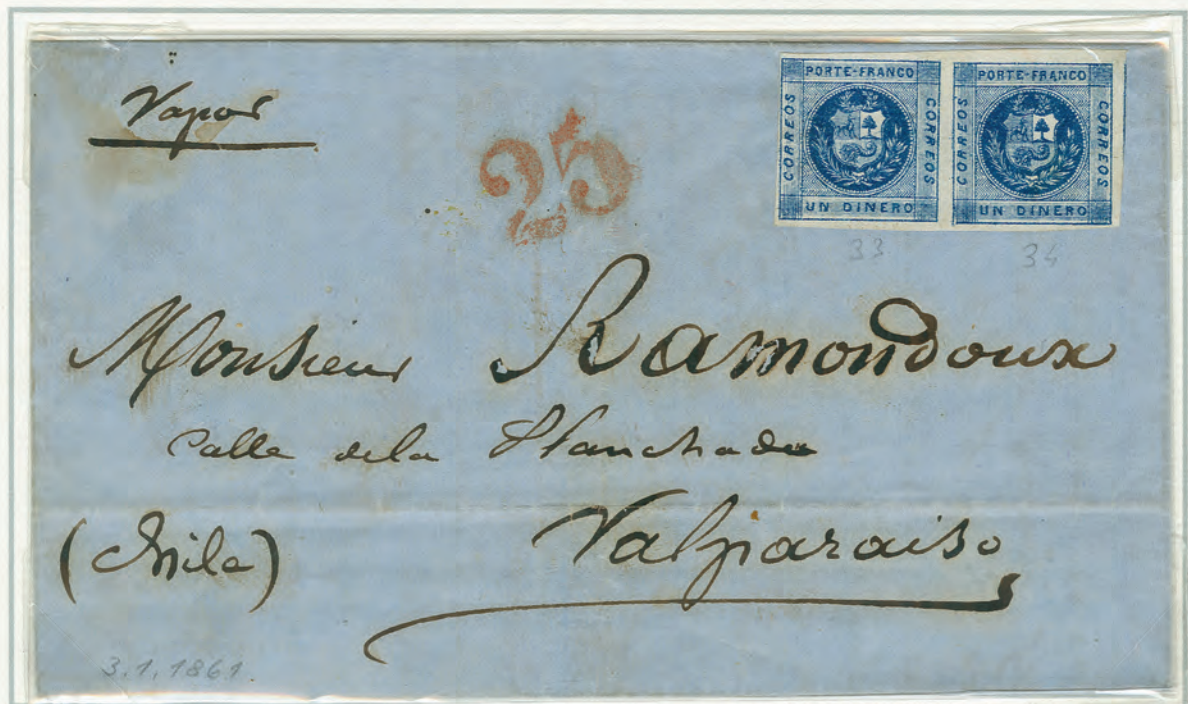 Vapor
25
PORTE-FRANCO
CORREOS
CORREOS
UN DINERO
PORTE-FRANCO
CORREOS
CORREOS
UN DINERO
33
34
Monsieur Ramondoux
Calle dela Planchada
(Chile) Valparaiso
3.1.1861.